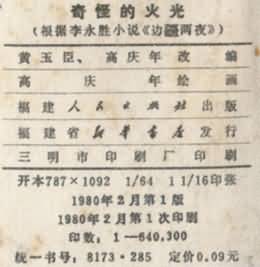 奇怪的火光
(根据李永胜小说《边疆两夜》)
黄玉臣、高庆年改编
高庆年绘画
福建人民出版社出版
福建省新华书店发行
三明市印刷厂印刷
开本787×1092 1/64 1 1/16印张
1980年2月第1版
1980年2月第1次印刷
印数：1—640,300
统一书号：8173·285 定价0.09元